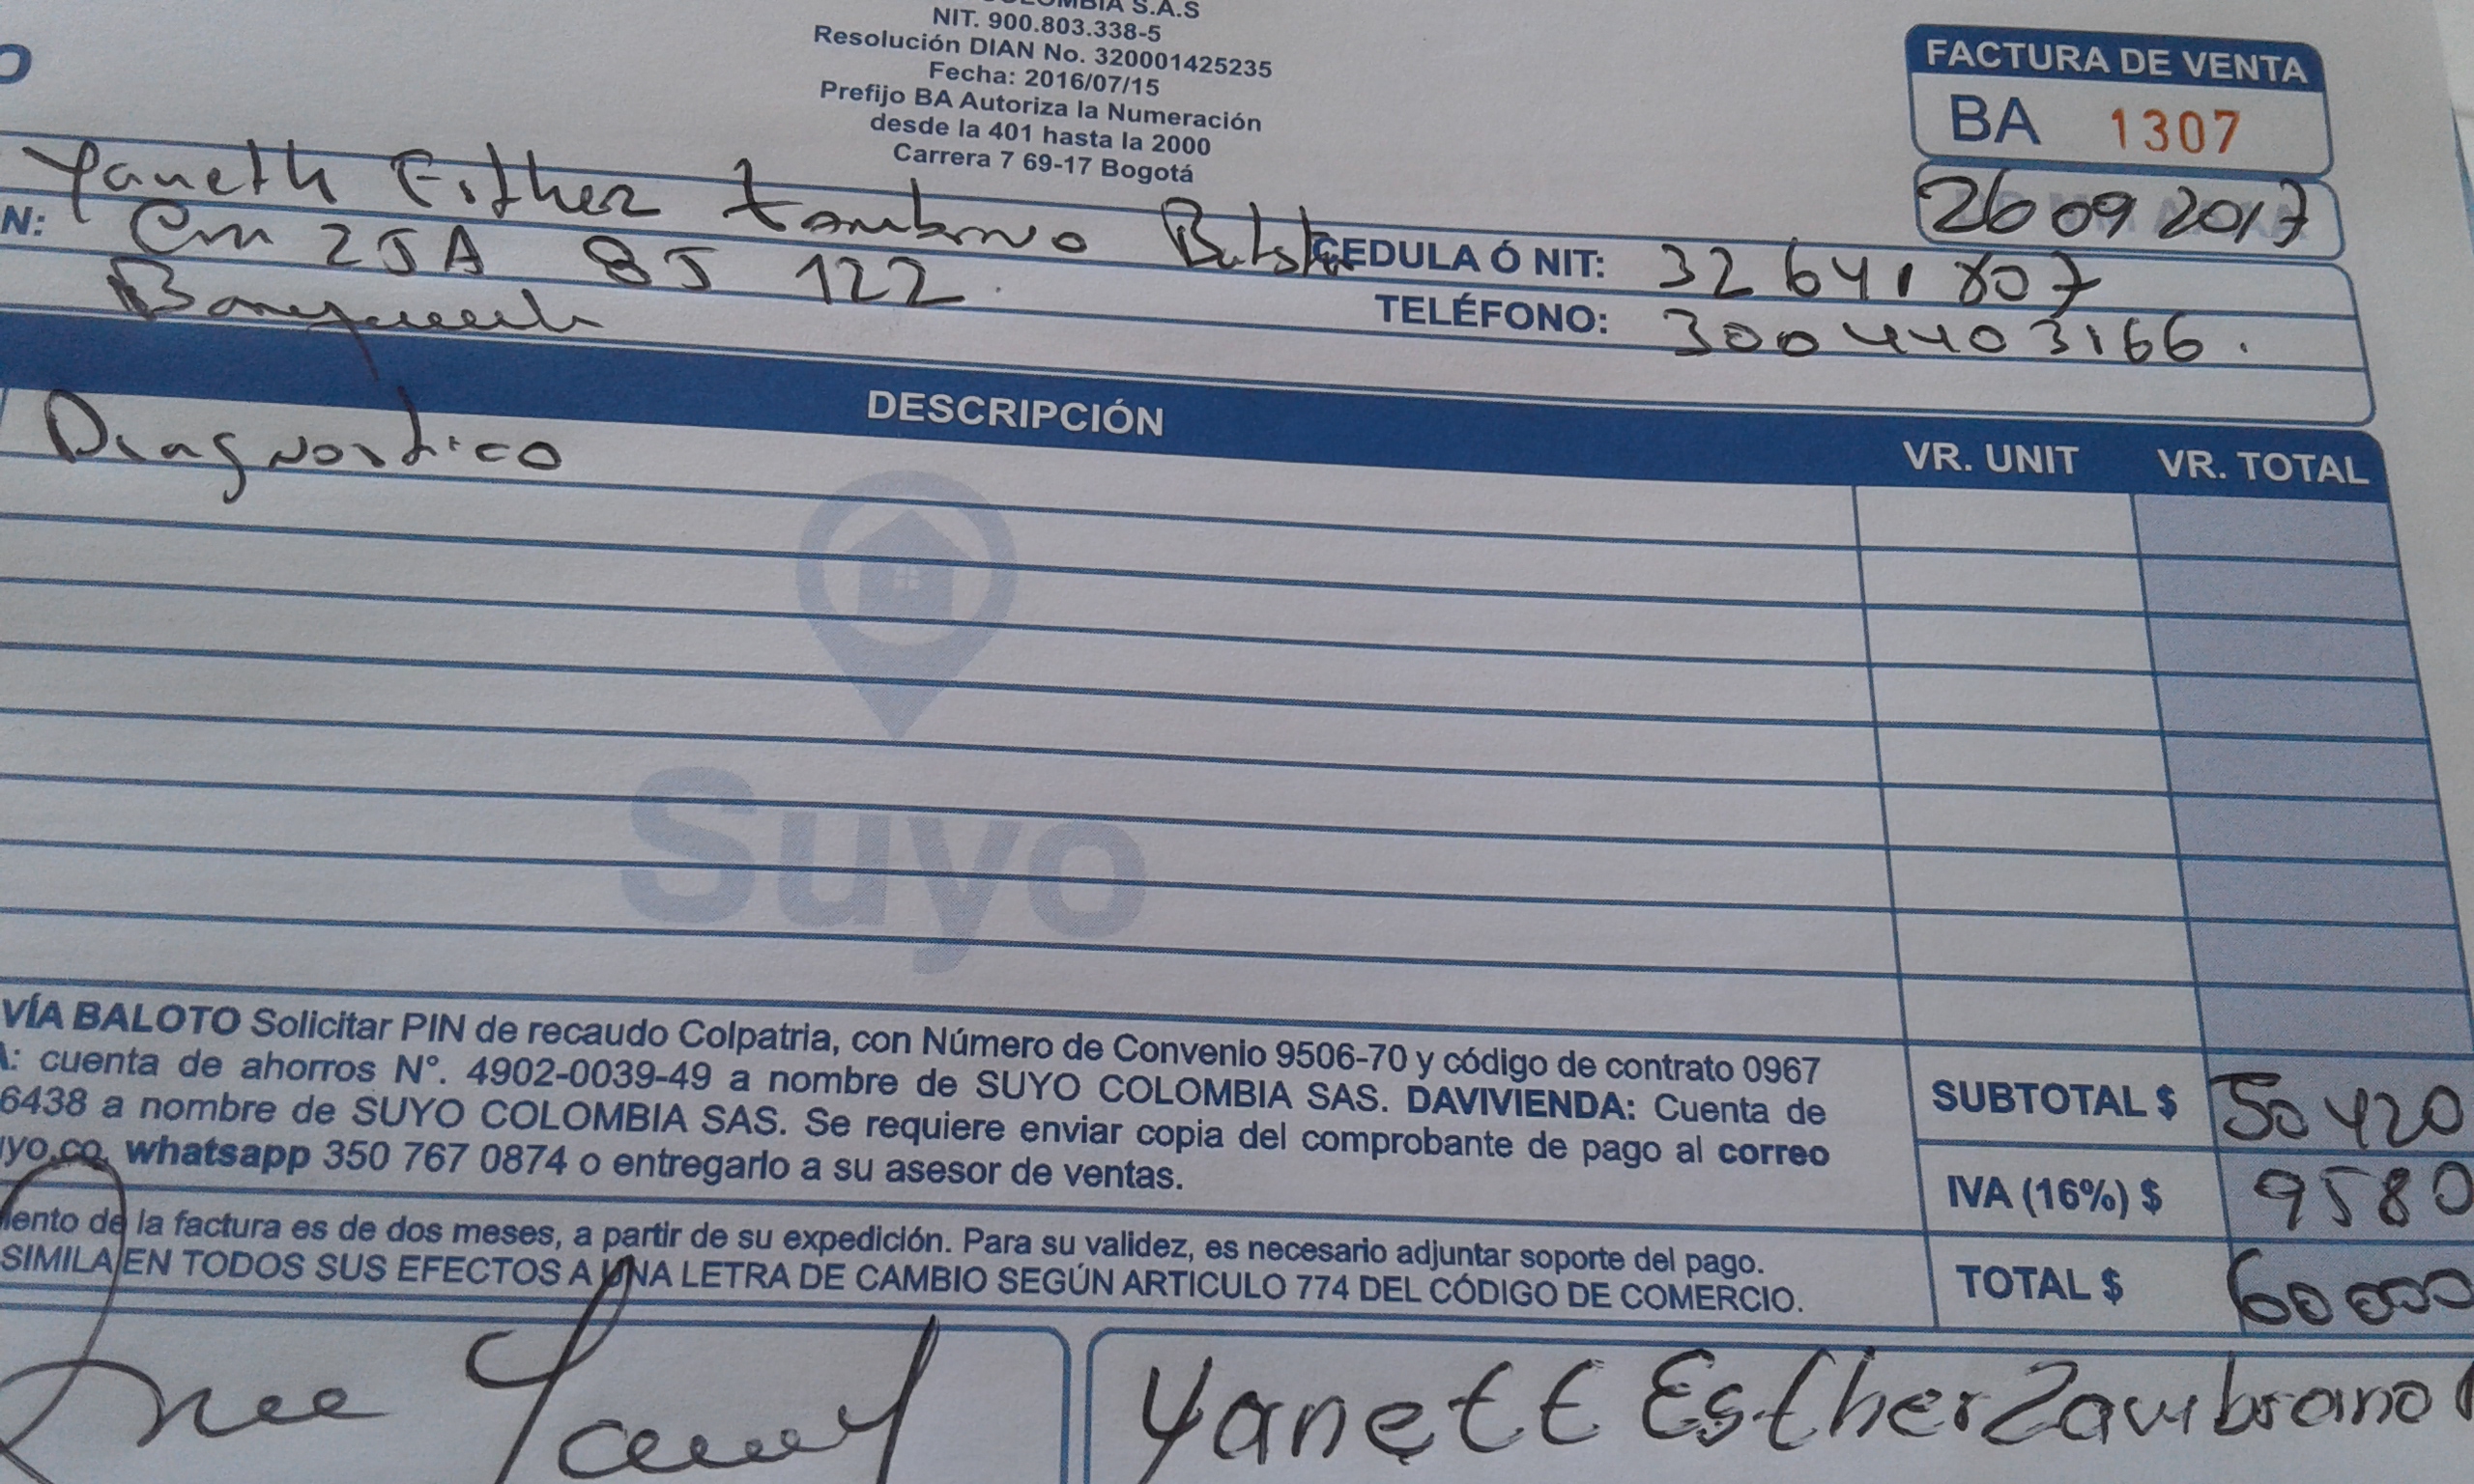 NIT. 900.803.338-5
Resolución DIAN No. 320001425235
Fecha: 2016/07/15
Prefijo BA Autoriza la Numeración
desde la 401 hasta la 2000
Carrera 7 69-17 Bogotá
FACTURA DE VENTA
BA 1307
26 09 2017
Yaneth Esther Zambrano
CEDULA Ó NIT: 32 641 807
N: Cra 25A 85 122
TELÉFONO: 300 440 3166.
DESCRIPCIÓN VR. UNIT VR. TOTAL
Diagnostico
Suyo
VÍA BALOTO Solicitar PIN de recaudo Colpatria, con Número de Convenio 9506-70 y código de contrato 0967
A: cuenta de ahorros N°. 4902-0039-49 a nombre de SUYO COLOMBIA SAS. DAVIVIENDA: Cuenta de
6438 a nombre de SUYO COLOMBIA SAS. Se requiere enviar copia del comprobante de pago al correo
uyo.co, whatsapp 350 767 0874 o entregarlo a su asesor de ventas.
SUBTOTAL $ 50420
IVA (16%) $ 9580
iento de la factura es de dos meses, a partir de su expedición. Para su validez, es necesario adjuntar soporte del pago.
SIMILA EN TODOS SUS EFECTOS A UNA LETRA DE CAMBIO SEGÚN ARTICULO 774 DEL CÓDIGO DE COMERCIO.
TOTAL $ 60000
Yanett Esther Zambrano